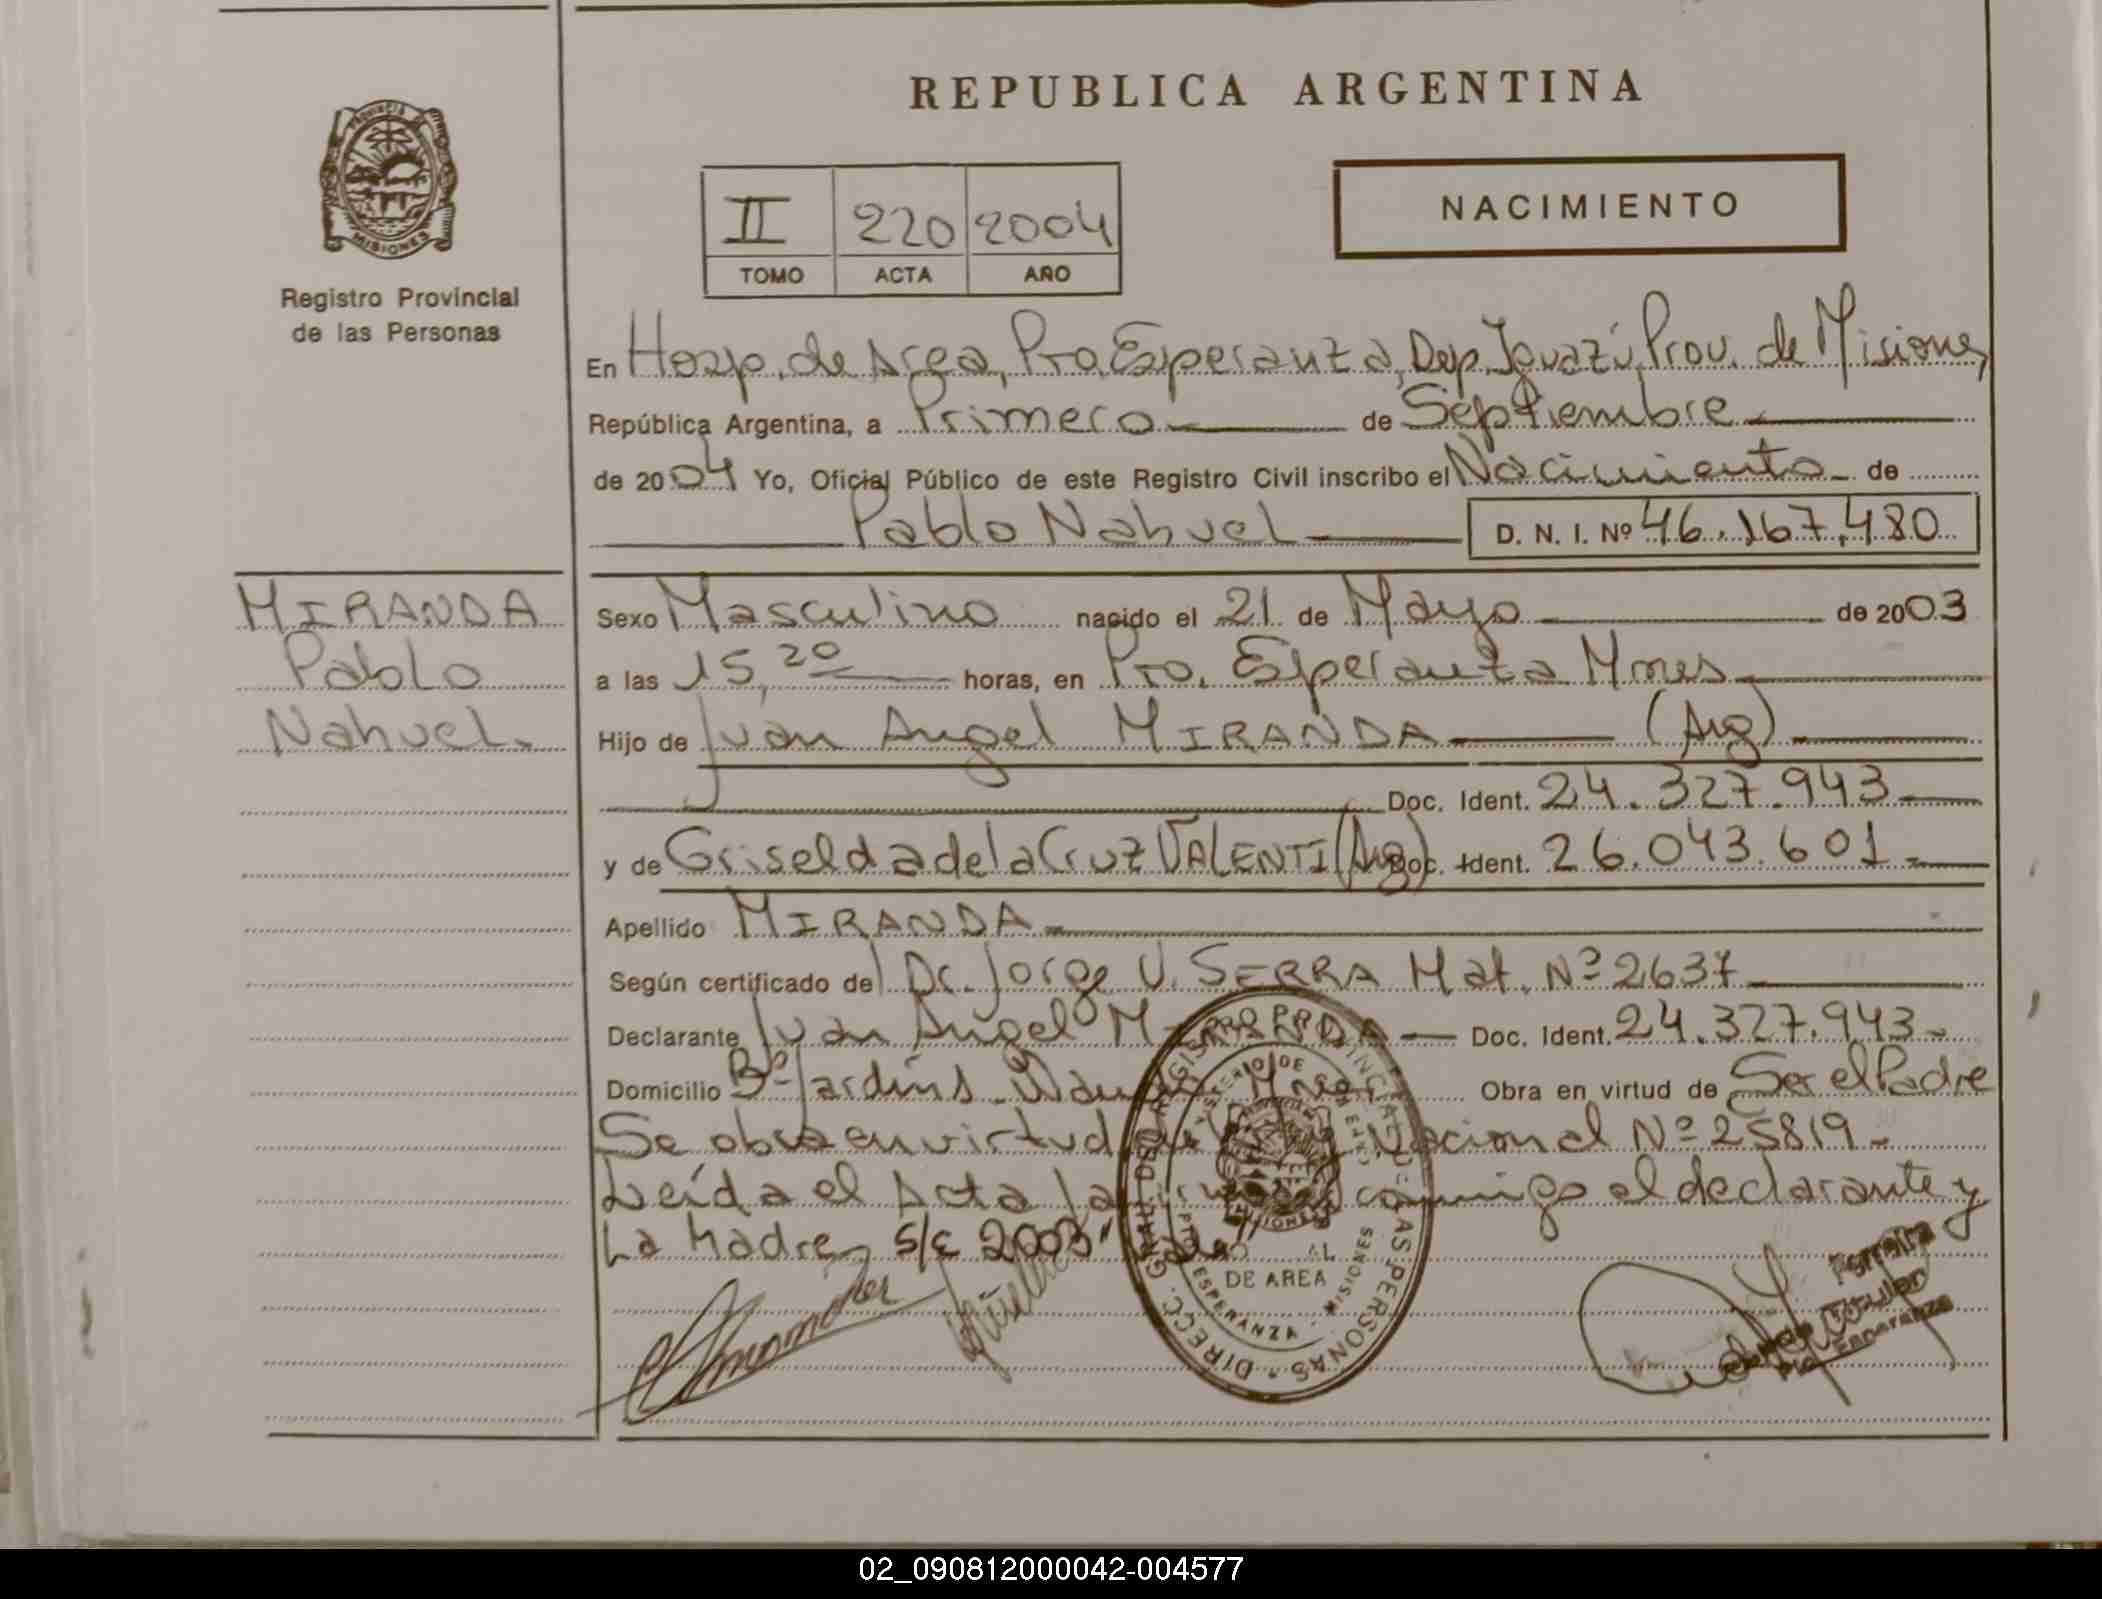 REPUBLICA ARGENTINA
MISIONES
Registro Provincial
de las Personas
II 220 2004
TOMO ACTA AÑO
NACIMIENTO
En Hosp. de Area, Pto. Esperanza, Dep. Iguazú, Prov. de Misiones,
República Argentina, a Primero de Septiembre
de 2004 Yo, Oficial Público de este Registro Civil inscribo el Nacimiento de
Pablo Nahuel D. N. I. Nº 46.167.480
MIRANDA
Pablo
Nahuel.
Sexo Masculino nacido el 21 de Mayo de 2003
a las 15,20 horas, en Pto. Esperanza Mnes
Hijo de Juan Angel MIRANDA (Arg)
Doc. Ident. 24.327.943
y de Griselda de la Cruz VALENTI (Arg) Doc. Ident. 26.043.601
Apellido MIRANDA
Según certificado del Dr. Jorge V. SERRA Mat. Nº 2637
Declarante Juan Angel Doc. Ident. 24.327.943
Domicilio Bº Jardín Obra en virtud de Ser el Padre
Se obra en virtud Nacional Nº 25819
Leída el Acta la conmigo el declarante y
La Madre, S/c 2003"
DIRECC. GRAL. DEL REGISTRO PROVINCIAL DE LAS PERSONAS
MINISTERIO DE GOBIERNO
DE AREA
PTO. ESPERANZA - MISIONES
Ferreira
Titular
Pto. Esperanza
02_090812000042-004577